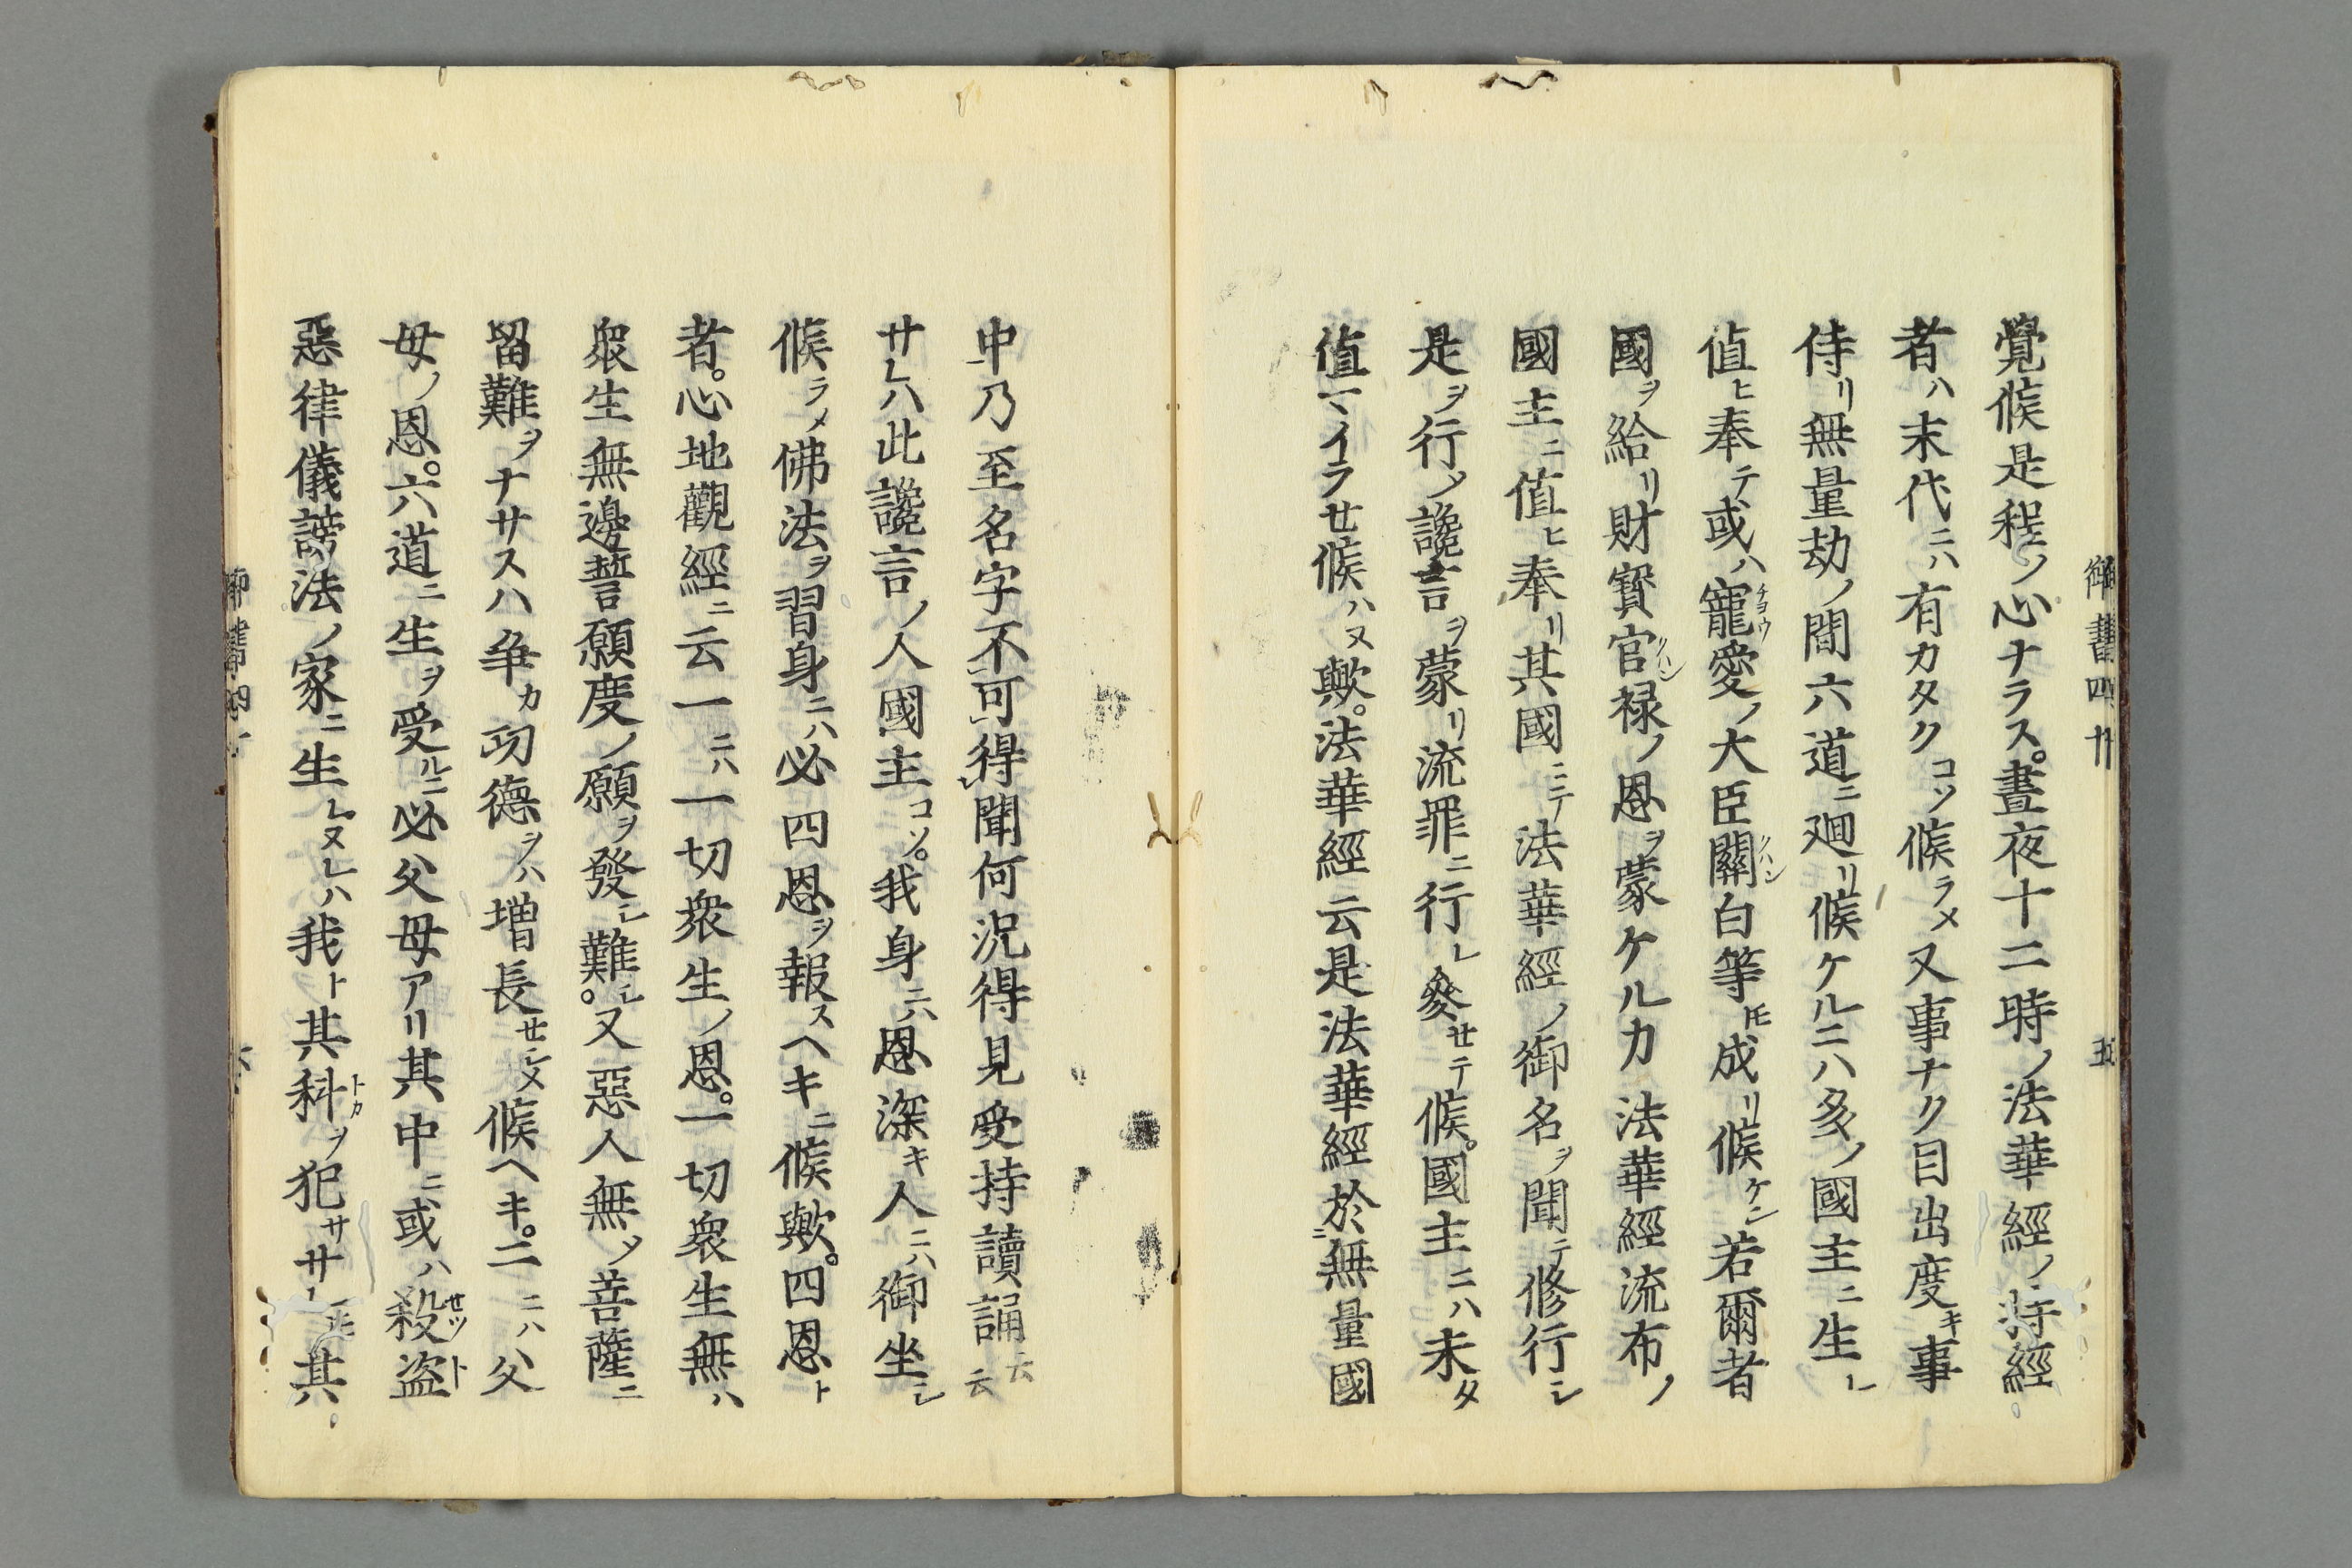 御書四十 五
覺候是程ノ心ナラス。晝夜十二時ノ法華經ノ持經
者ハ末代ニハ有カタクコソ候ラメ又事ナク目出度キ事
侍リ無量劫ノ間六道ニ廻リ候ケルニハ多ノ國主ニ生レ
値ヒ奉テ或ハ寵チヨウ愛ノ大臣關クハン白等𪜈成リ候ケン若爾者
國ヲ給リ財寶官クハン禄ノ恩ヲ蒙ケルカ法華經流布ノ
國主ニ値ヒ奉リ其國ニテ法華經ノ御名ヲ聞テ修行シ
是ヲ行ノ讒言ヲ蒙リ流罪ニ行レ參セテ候。國主ニハ未タ
値マイラせ候ハヌ歟。法華經云是法華經於ニ無量國
中乃至名字不可得聞何況得見受持讀誦云云
サレハ此讒言ノ人國主コソ。我身ニハ恩深キ人ニハ御坐シ
候ラメ佛法ヲ習身ニハ必四恩ヲ報スヘキニ候歟。四恩ト
者。心地觀經ニ云一ニハ一切衆生ノ恩。一切衆生無ハ
衆生無邊誓願度ノ願ヲ發シ難シ。又惡人無ノ菩薩ニ
留難ヲナサスハ争カ功德ヲハ增長せシメ候ヘキ。二ニハ父
母ノ恩。六道ニ生ヲ受ルニ必父母アリ其中ニ或ハ殺せツト盗
惡律儀謗法ノ家ニ生レヌレハ我ト其科トカヲ犯サヽレ𪜈其
御書四十 六